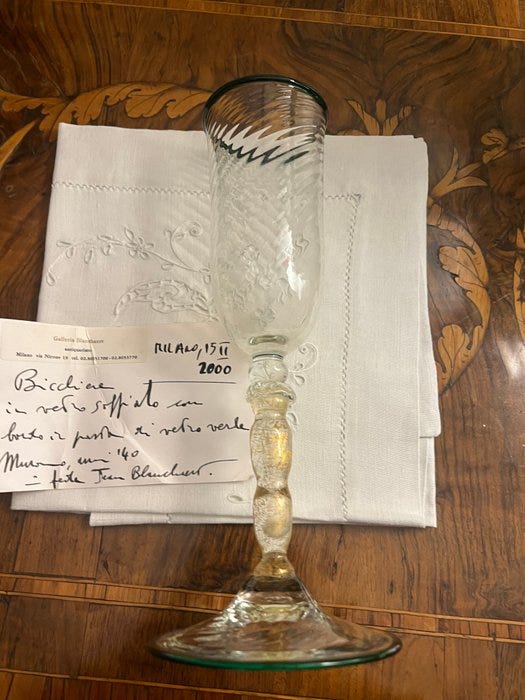 Galleria Blanchaert
antiquariato
Milano via Nirone 19 tel. 02.86451700 - 02.8053770
MILANO, 15 II
2000
Bicchiere
in vetro soffiato con
bordo in pasta di vetro verde
Murano, anni '40
in fede Jean Blanchaert